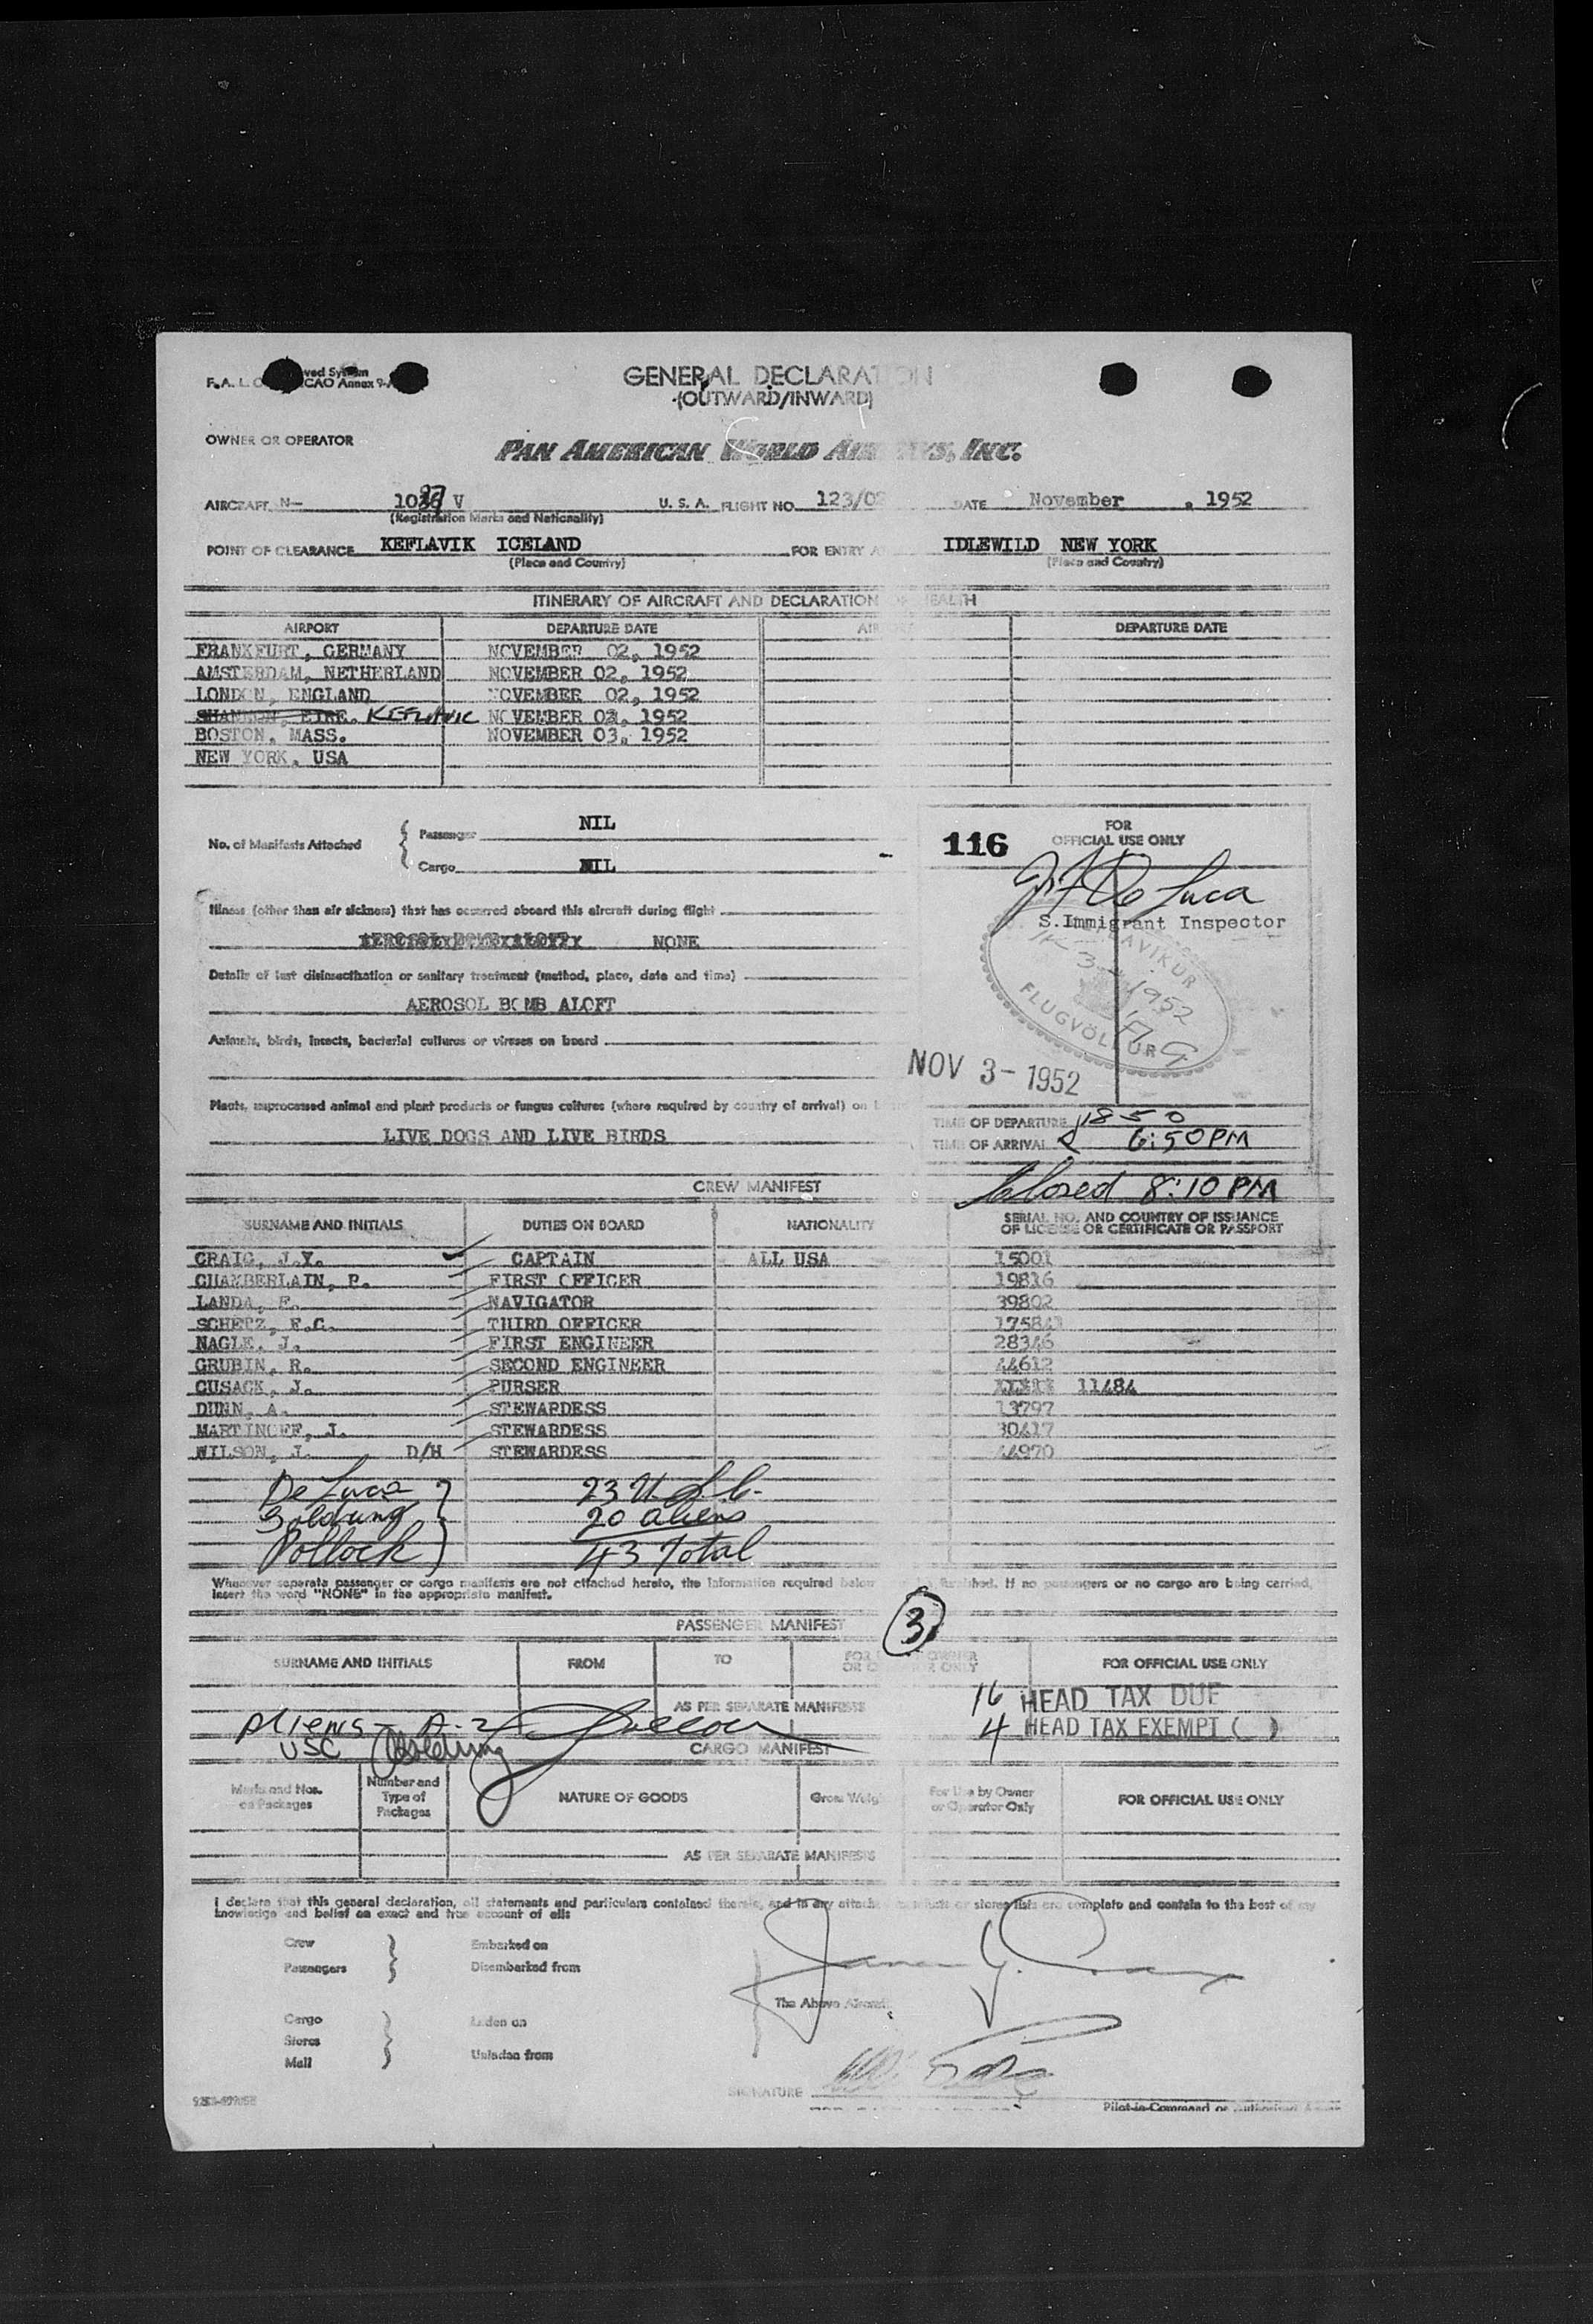 GENERAL DECLARATION
(OUTWARD/INWARD)
F. A. L. CAO Annex 9-
OWNER OR OPERATOR
PAN AMERICAN WORLD AIRWAYS, INC.
AIRCRAFT N- V U. S. A. FLIGHT NO. 123/02 DATE November , 1952
(Registration Marks and Nationality)
POINT OF CLEARANCE KEFLAVIK ICELAND FOR ENTRY AT IDLEWILD NEW YORK
(Place and Country) (Place and Country)
ITINERARY OF AIRCRAFT AND DECLARATION OF HEALTH
AIRPORT DEPARTURE DATE AIRPORT DEPARTURE DATE
FRANKFURT, GERMANY NOVEMBER 02, 1952
AMSTERDAM, NETHERLAND NOVEMBER 02, 1952
LONDON, ENGLAND NOVEMBER 02, 1952
SHANNON, EIRE. KEFLAVIC NOVEMBER 03, 1952
BOSTON, MASS. NOVEMBER 03, 1952
NEW YORK, USA
No. of Manifests Attached { Passenger NIL
Cargo NIL
116
FOR
OFFICIAL USE ONLY
De Luca
S.Immigrant Inspector
Illness (other than air sickness) that has occurred aboard this aircraft during flight
NONE
Details of last disinsectization or sanitary treatment (method, place, date and time)
AEROSOL BOMB ALOFT
Animals, birds, insects, bacterial cultures or viruses on board
LAVIKUR
3 - 1952
FLUGVÖLLUR
NOV 3 - 1952
Plants, unprocessed animal and plant products or fungus cultures (where required by country of arrival) on
LIVE DOGS AND LIVE BIRDS
TIME OF DEPARTURE 1850
TIME OF ARRIVAL 6:50 PM
CREW MANIFEST
Closed 8:10 PM
SURNAME AND INITIALS DUTIES ON BOARD NATIONALITY SERIAL NO. AND COUNTRY OF ISSUANCE
OF LICENSE OR CERTIFICATE OR PASSPORT
CRAIG, J.Y. CAPTAIN ALL USA 15001
CHAMBERLAIN, P. FIRST OFFICER 19816
LANDA, F. NAVIGATOR 39802
SCHETZ, F.C. THIRD OFFICER 17584
NAGLE, J. FIRST ENGINEER 28346
GRUBIN, R. SECOND ENGINEER 44612
CUSACK, J. PURSER 11484
DUNN, A. STEWARDESS 13797
MARTINOFF, J. STEWARDESS 30417
WILSON, J. D/H STEWARDESS 44970
De Luca } 23 U.S.C.
Goldrung 20 aliens
Pollock 43 Total
Whenever separate passenger or cargo manifests are not attached hereto, the information required below furnished. If no passengers or no cargo are being carried,
insert the word "NONE" in the appropriate manifest.
3
PASSENGER MANIFEST
SURNAME AND INITIALS FROM TO FOR OWNER
OR ONLY FOR OFFICIAL USE ONLY
AS PER SEPARATE MANIFESTS
16 HEAD TAX DUE
4 HEAD TAX EXEMPT ( )
Aliens - A-2
USC
CARGO MANIFEST
Marks and Nos.
on Packages Number and
Type of
Packages NATURE OF GOODS Gross Weight For Use by Owner
or Operator Only FOR OFFICIAL USE ONLY
AS PER SEPARATE MANIFESTS
I declare that this general declaration, all statements and particulars contained therein, and in any attached or stores lists are complete and contain to the best of my
knowledge and belief an exact and true account of all:
Crew Embarked on
Passengers Disembarked from
The Above Aircraft
Cargo Laden on
Stores
Mail Unladen from
SIGNATURE
Pilot-in-Command or authorized